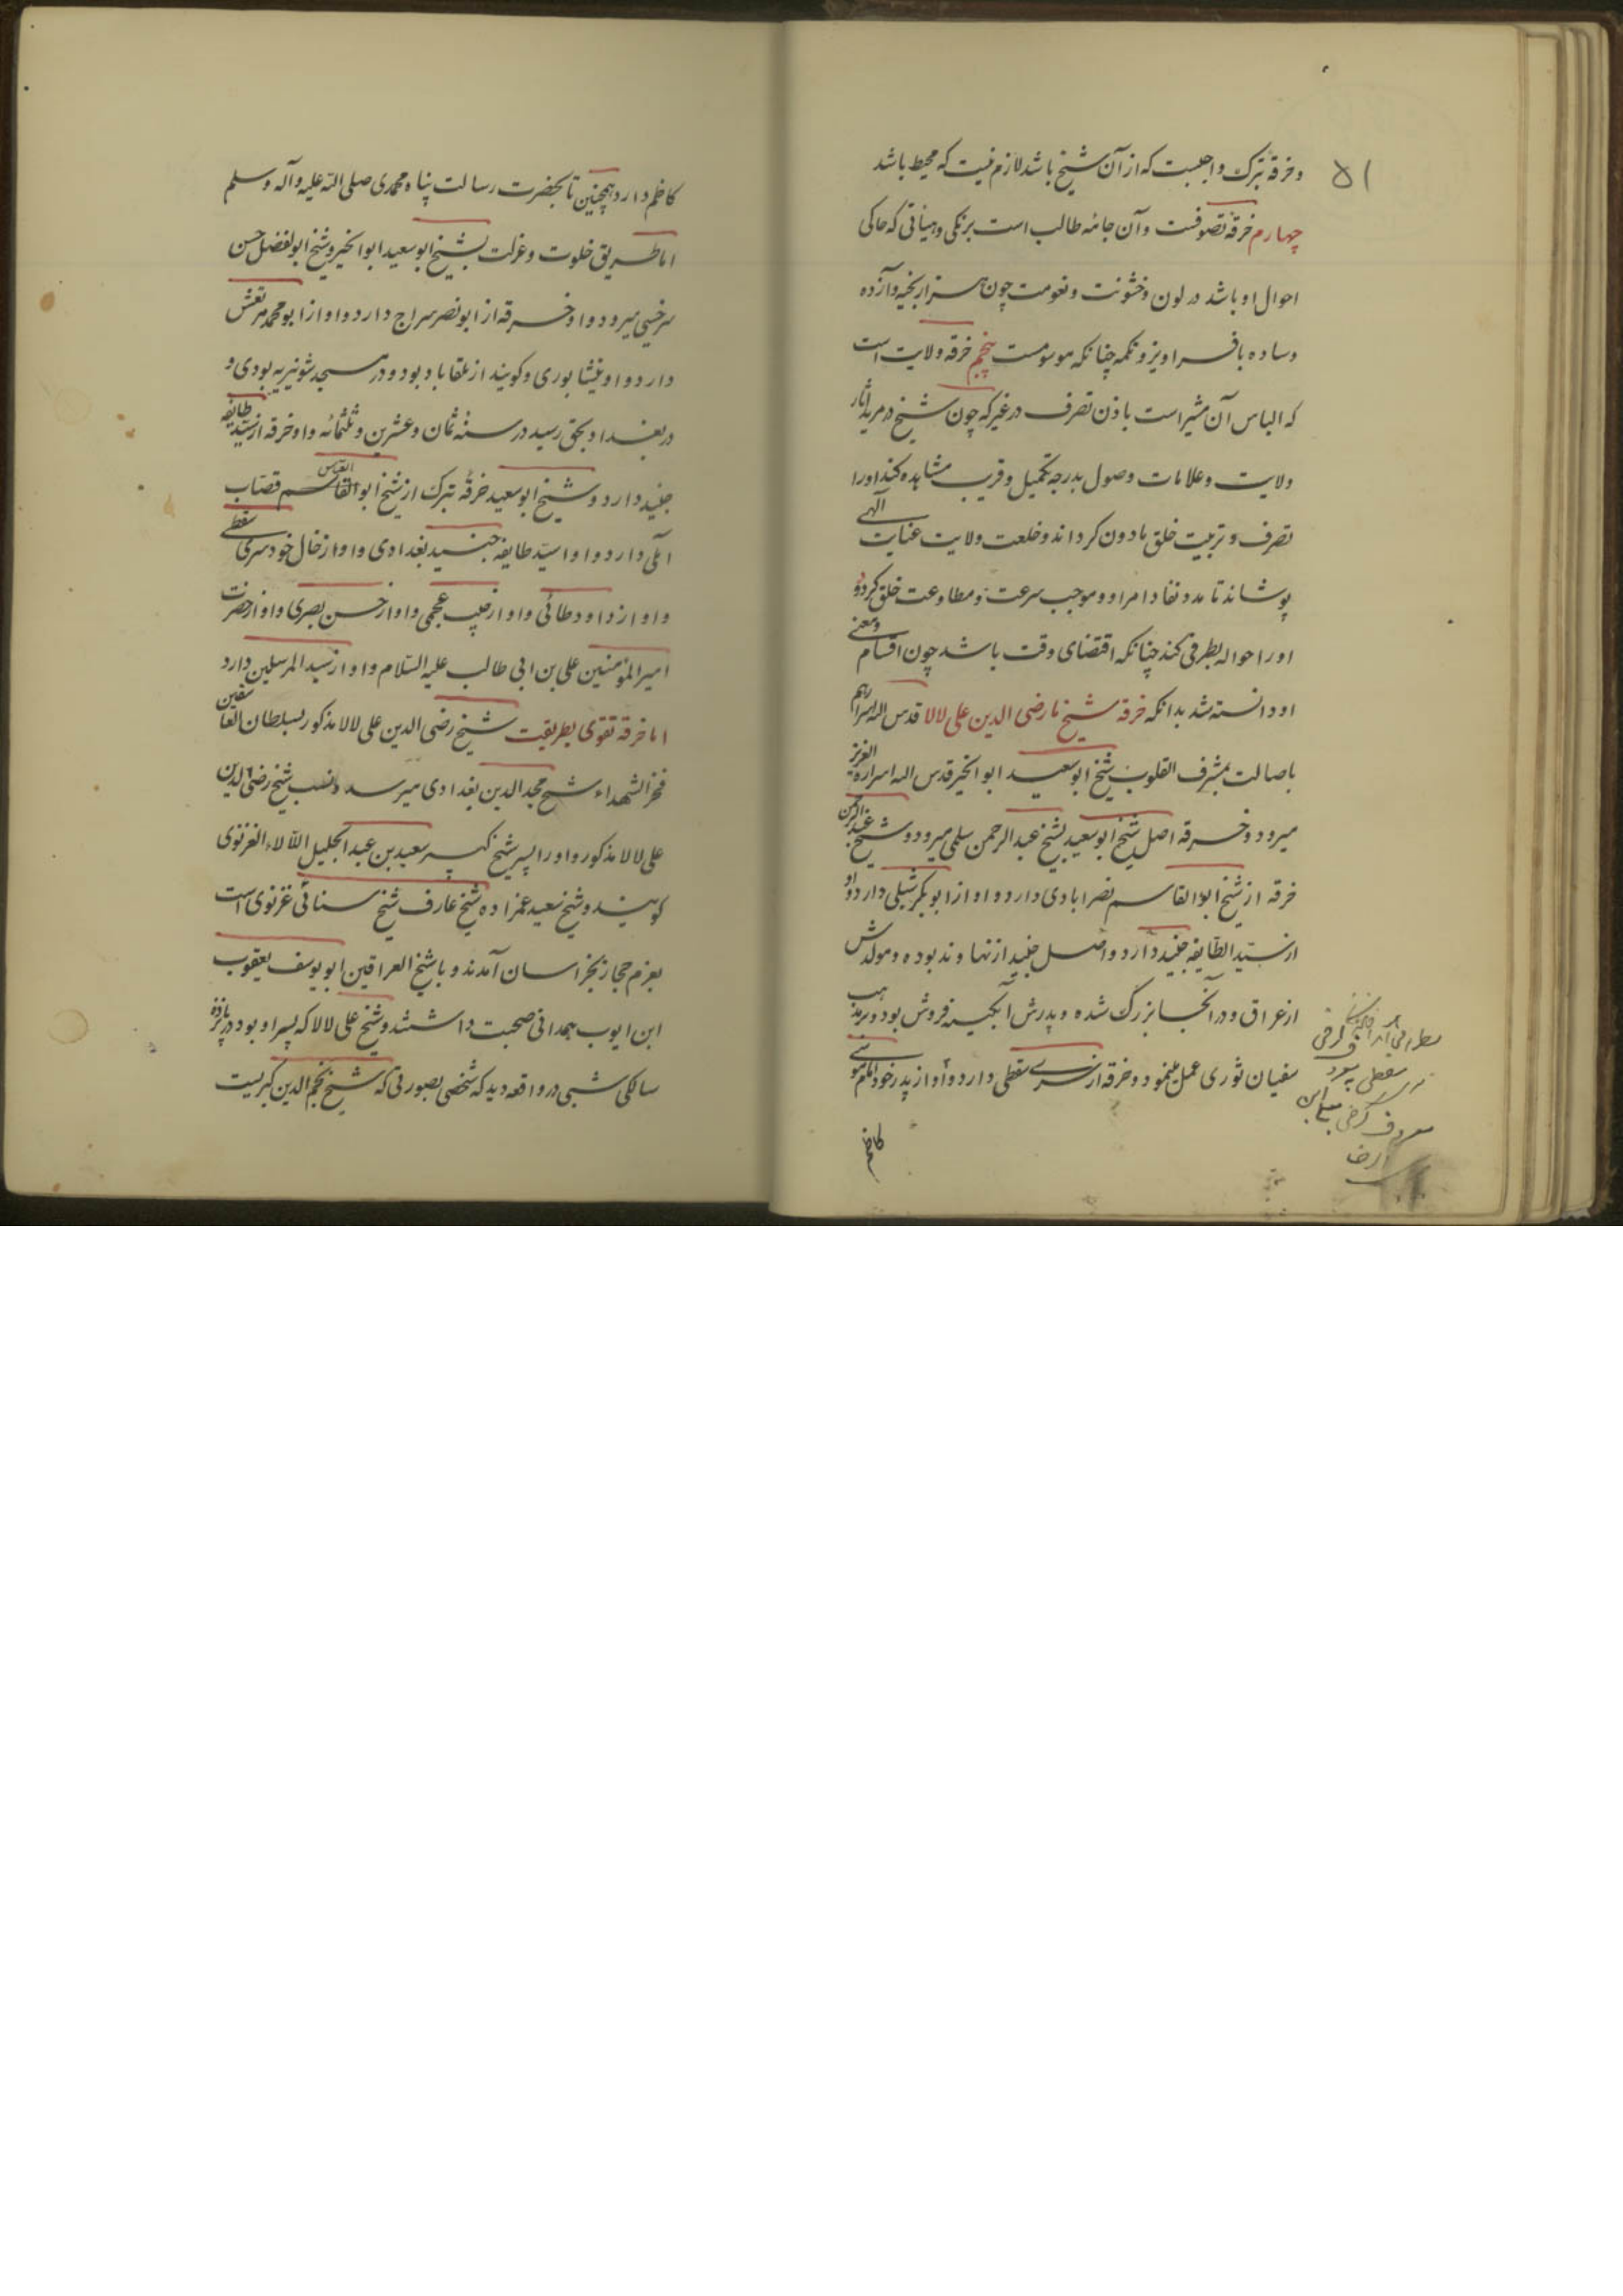 ۵۱
وخرقه تبرک واجبست که از آن شیخ باشد لازم نیست که محیط باشد
چهارم خرقه تصوفست و آن جامه طالب است برنکی و هیأتی که حاکی
احوال او باشد در لون و خشونت و نعومت چون هزار بخیه و آژده
وساده با فراویز و تکمه چنانکه موسومست پنجم خرقه ولایت است
که الباس آن مشیر است باذن تصرف در غیر که چون شیخ در مرید آثار
ولایت وعلامات وصول بدرجه تکمیل و قرب مشاهده کند اورا
تصرف و تربیت خلق مأذون کرداند و خلعت ولایت عنایت الهی
پوشاند تا مدد نفاذ امر او و موجب سرعت مطاوعت خلق کردد و
اورا حواله بطرفی کند چنانکه اقتضای وقت باشد چون اقسام ومعنی
او دانسته شد بدانکه خرقه شیخ ما رضی الدین علی لالا قدس الله اسرارهم
باصالت بمشرف القلوب شیخ ابوسعید ابوالخیر قدس الله اسراره العزیز
میرود و خرقه اصل شیخ ابوسعید بشیخ عبدالرحمن سلمی میرود و شیخ عبدالرحمن
خرقه از شیخ ابوالقاسم نصرابادی دارد و او از ابوبکر شبلی دارد و او
از سید الطایفه جنید دارد و اصل جنید از نهاوند بوده و مولدش
از عراق و در آنجا بزرک شده و پدرش آبکینه فروش بود و بر مذهب
سفیان ثوری عمل مینمود و خرقه از سری سقطی دارد و او از پدر خود امام موسی
کاظم
سقطی
معروف کرخی
رضا
کاظم دارد همچنین تا بحضرت رسالت پناه محمدی صلی الله علیه وآله وسلم
اما طریق خلوت و عزلت بشیخ ابوسعید ابوالخیر و شیخ ابوالفضل حسن
سرخسی میرود و او خرقه از ابونصر سراج دارد و او از ابومحمد مرتعش
دارد و او نیشابوری و کویند از ملقاباد بود و در مسجد شونیزیه بودی و
در بغداد بحق رسید در سنه ثمان وعشرین و ثلثمائه و او خرقه از سید طایفه
جنید دارد و شیخ ابوسعید خرقه تبرک از شیخ ابوالقاسم العباس قصاب
آملی دارد و او از سید طایفه جنید بغدادی و او از خال خود سری سقطی
و او از داود طائی و او از حبیب عجمی و او از حسن بصری و او از حضرت
امیرالمؤمنین علی بن ابی طالب علیه السلام و او از سید المرسلین دارد
اما خرقه تقوی بطریقت شیخ رضی الدین علی لالا مذکور بسلطان العاشقین
فخر الشهداء شیخ مجد الدین بغدادی میرسد و نسب شیخ رضی الدین
علی لالا مذکور و اورا پسر شیخ کبیر سعید بن عبد الجلیل اللالاء الغزنوی
کویند و شیخ سعید عمزاده شیخ عارف شیخ سنائی غزنوی است
بعزم حجاز بخراسان آمدند و با شیخ العراقین ابویوسف یعقوب
ابن ایوب همدانی صحبت داشتند و شیخ علی لالا که پسر او بود در پانزده
سالکی شبی در واقعه دید که شخصی بصورتی که شیخ نجم الدین کبریست